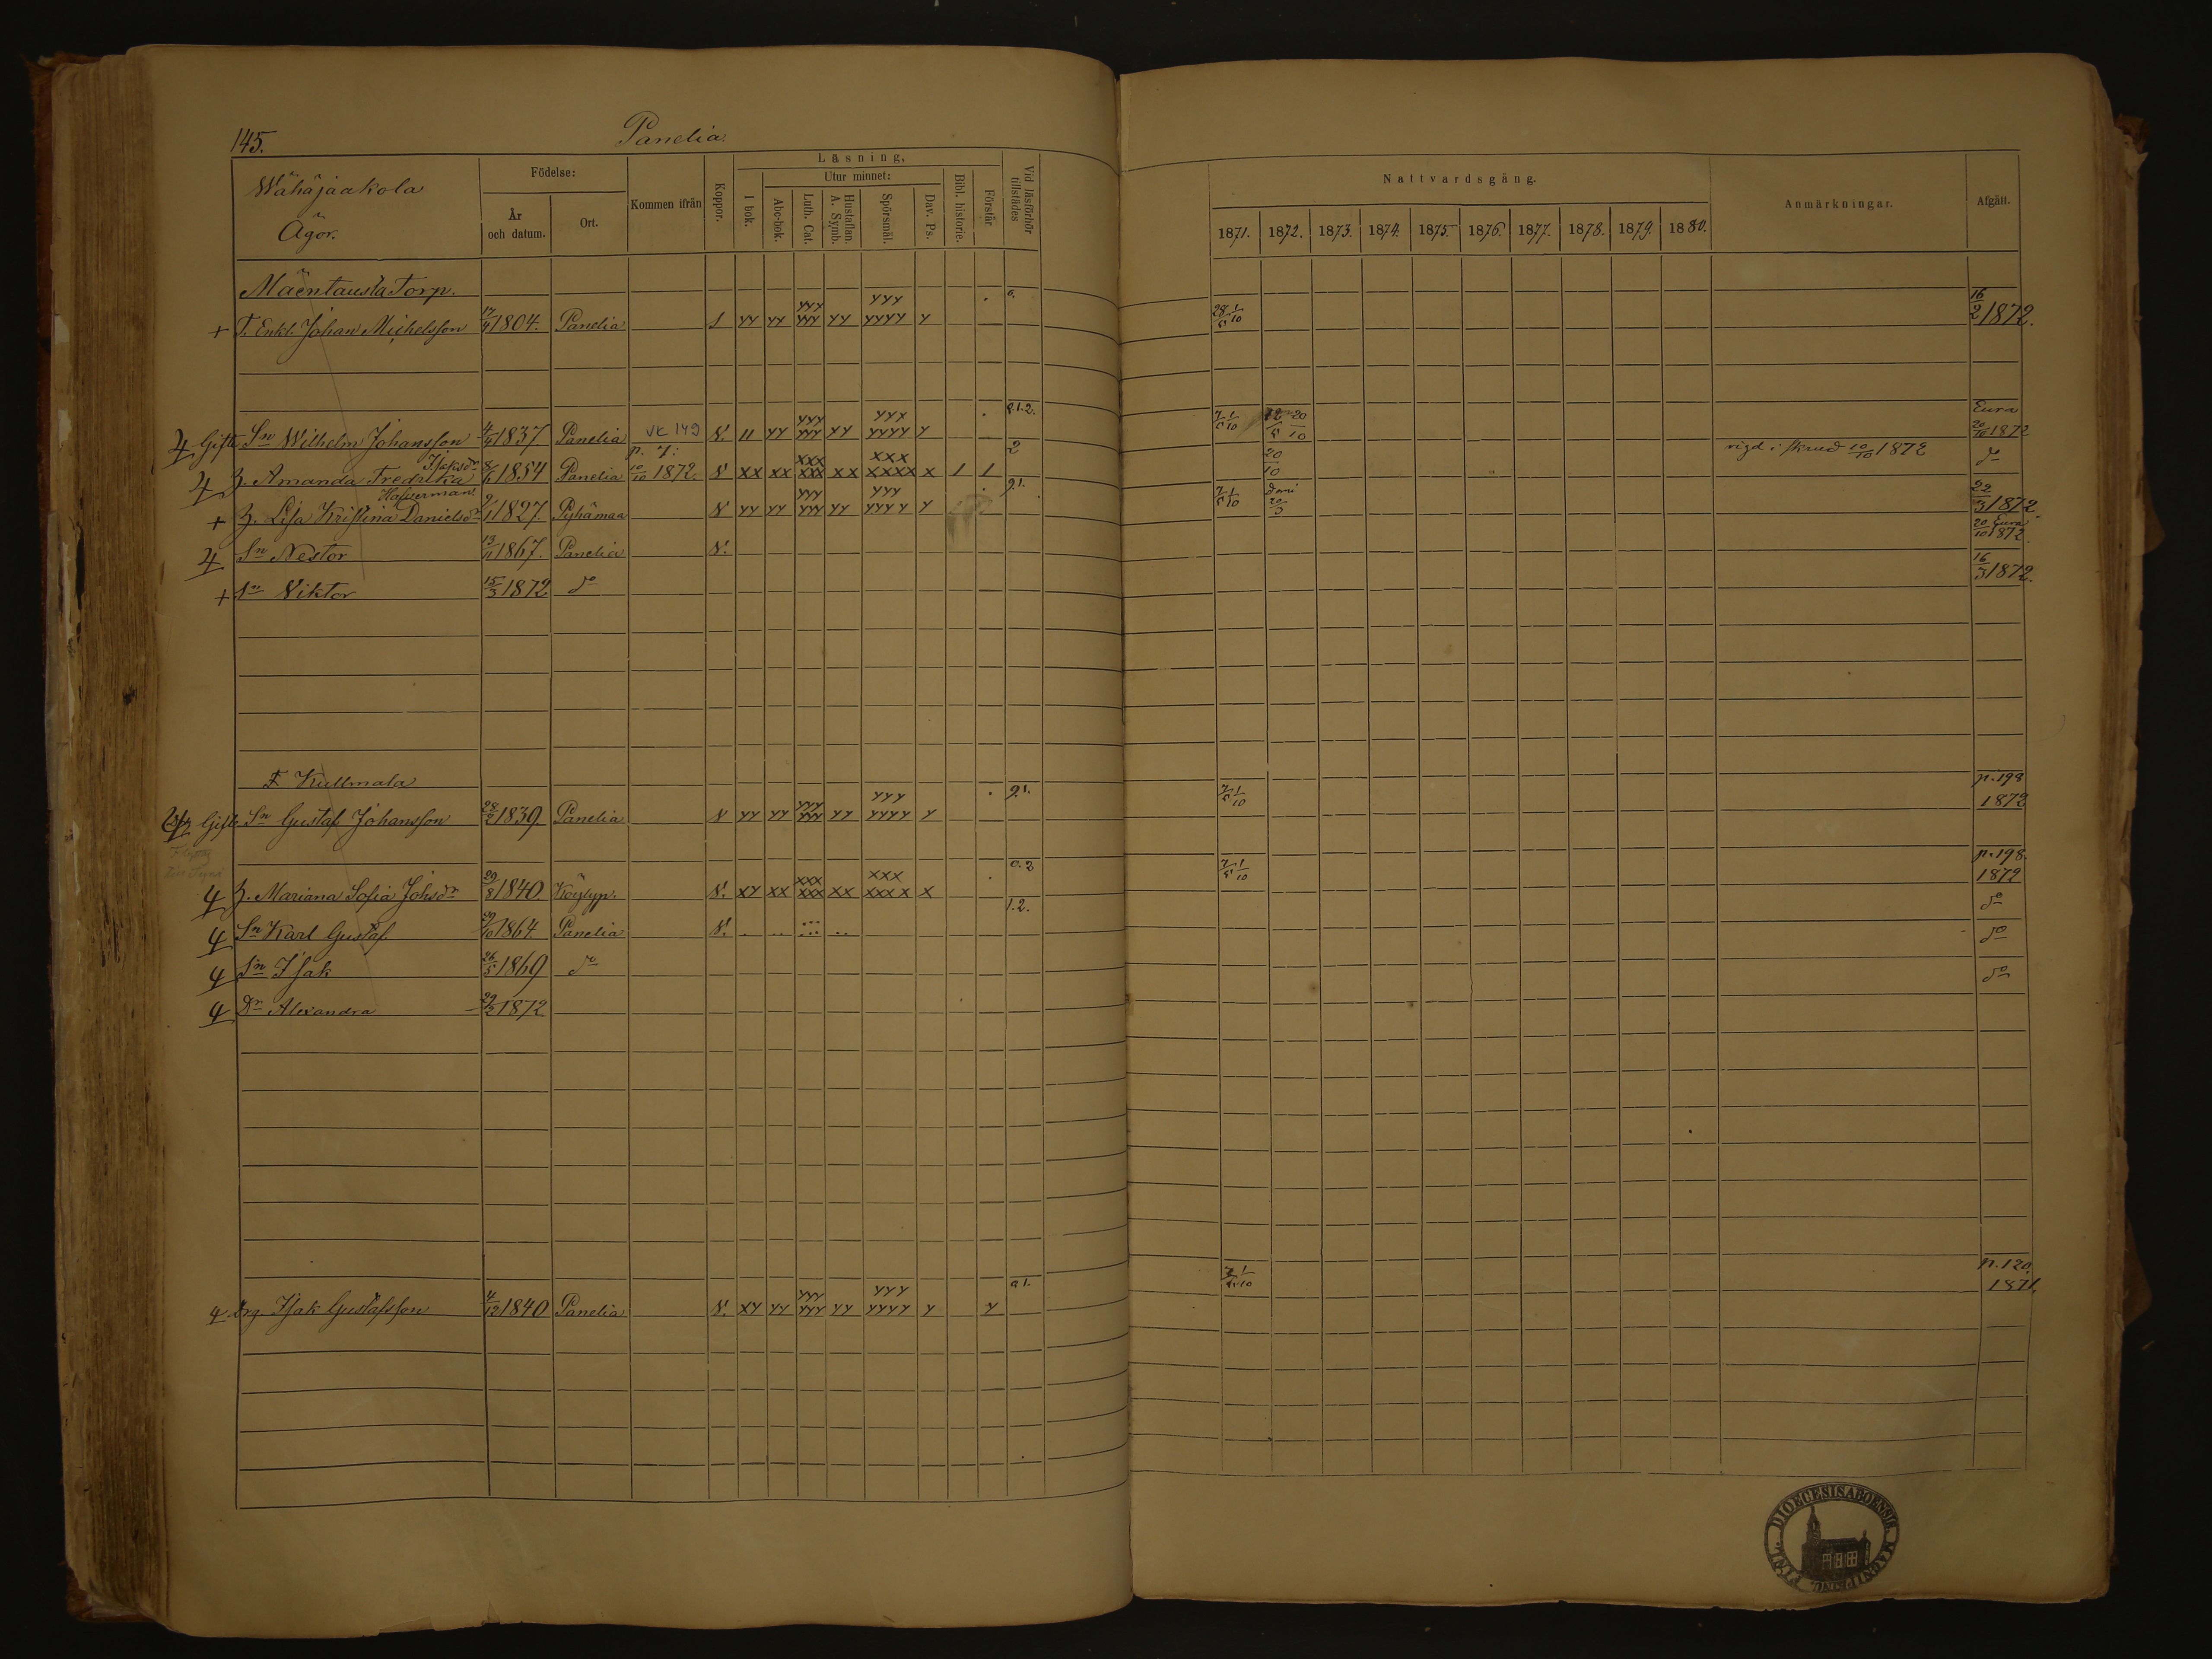 145.
Panelia
Wähäjaakola
Ägor.
Födelse:
År
och datum.
Ort.
Kommen ifrån
Koppor.
Läsning,
I bok.
Utur minnet:
Abc-bok.
Luth. Cat.
Hustaflan.
A. Symb.
Spörsmål.
Dav. Ps.
Bibl. historie.
Förstår
Vid läsförhör
tillstädes
Nattvardsgång.
1871. 1872. 1873. 1874. 1875. 1876. 1877. 1878. 1879. 1880.
Anmärkningar.
Afgått.
Mäentausta Torp.
+ T. Enkl. Johan Michelsson 17/9 1804. Panelia 1 yy yy yyy yyy yy yyy yyyy y 16/2 1872.
Gifte Sn Wilhelm Johansson 4/5 1837 Panelia VK 149 V. 11 yy yyy yyy yy yyx yyyy y 0.1.2. Eura 20/10 1872
H. Amanda Fredrika Isaksdr 8/6 1854 Panelia 10/10 1872. V xx xx xxx xxx xx xxx xxxx x 1 1 2 20/10 vigd i Kiukais 10/10 1872 do
Hafverman.
+ H. Lisa Kristina Danielsdr 9/1 1827. Pyhämaa V yy yy yyy yyy yy yyy yyyy y 22/3 1872
Sn Nestor 13/11 1867. Panelia V. 20/10 Eura 1872.
+ Sn Viktor 15/3 1872 do 16/3 1872.
F Kullmala
Gifte Sn Gustaf Johansson 28/2 1839. Panelia V yy yy yyy yyy yy yyy yyyy y p. 198 1872
H. Mariana Sofia Johsdr 29/8 1840. Köylyp. V. xy xx xxx xxx xx xxx xxxx x 0.2 p. 198. 1872
Sn Karl Gustaf 29/10 1864 Panelia V. 1.2. do
Sn Isak 26/5 1869 do do
Dr Alexandra 29/3 1872 do
Drg Isak Gustafsson 4/12 1840 Panelia V. xy yy yyy yyy yy yyy yyyy y y p. 120. 1871.
DIOECESIS ABOENSIS